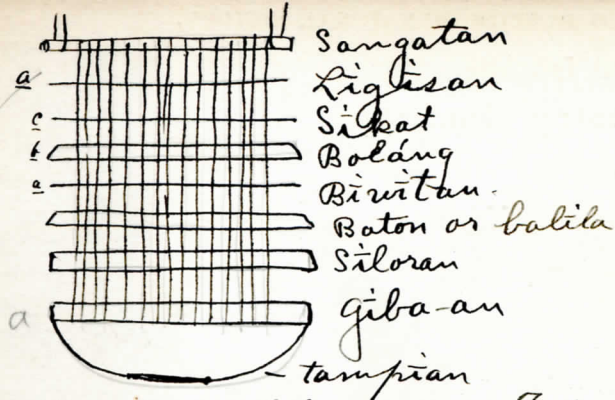 Songatan
a Ligisan
c Sikat
b Boláng
a Biwitan.
Baton or balila
Siloran
a Giba-an
tampian